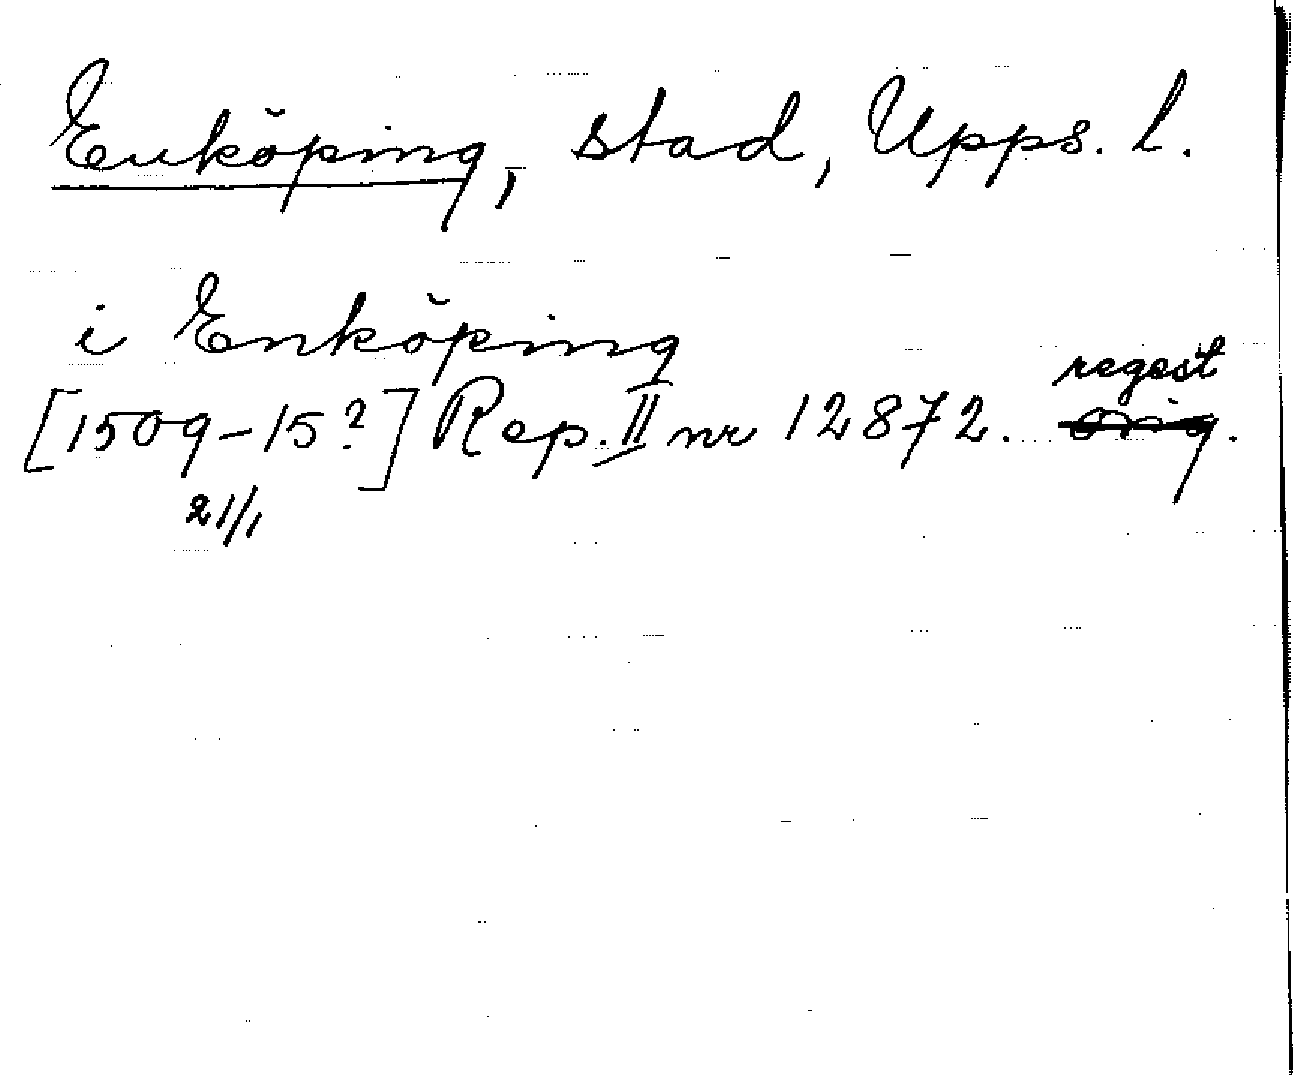 Enköping, stad, Upps. l.
i Enköping
regest
[1509-15?] Rep. II nr 12872. orig.
21/1